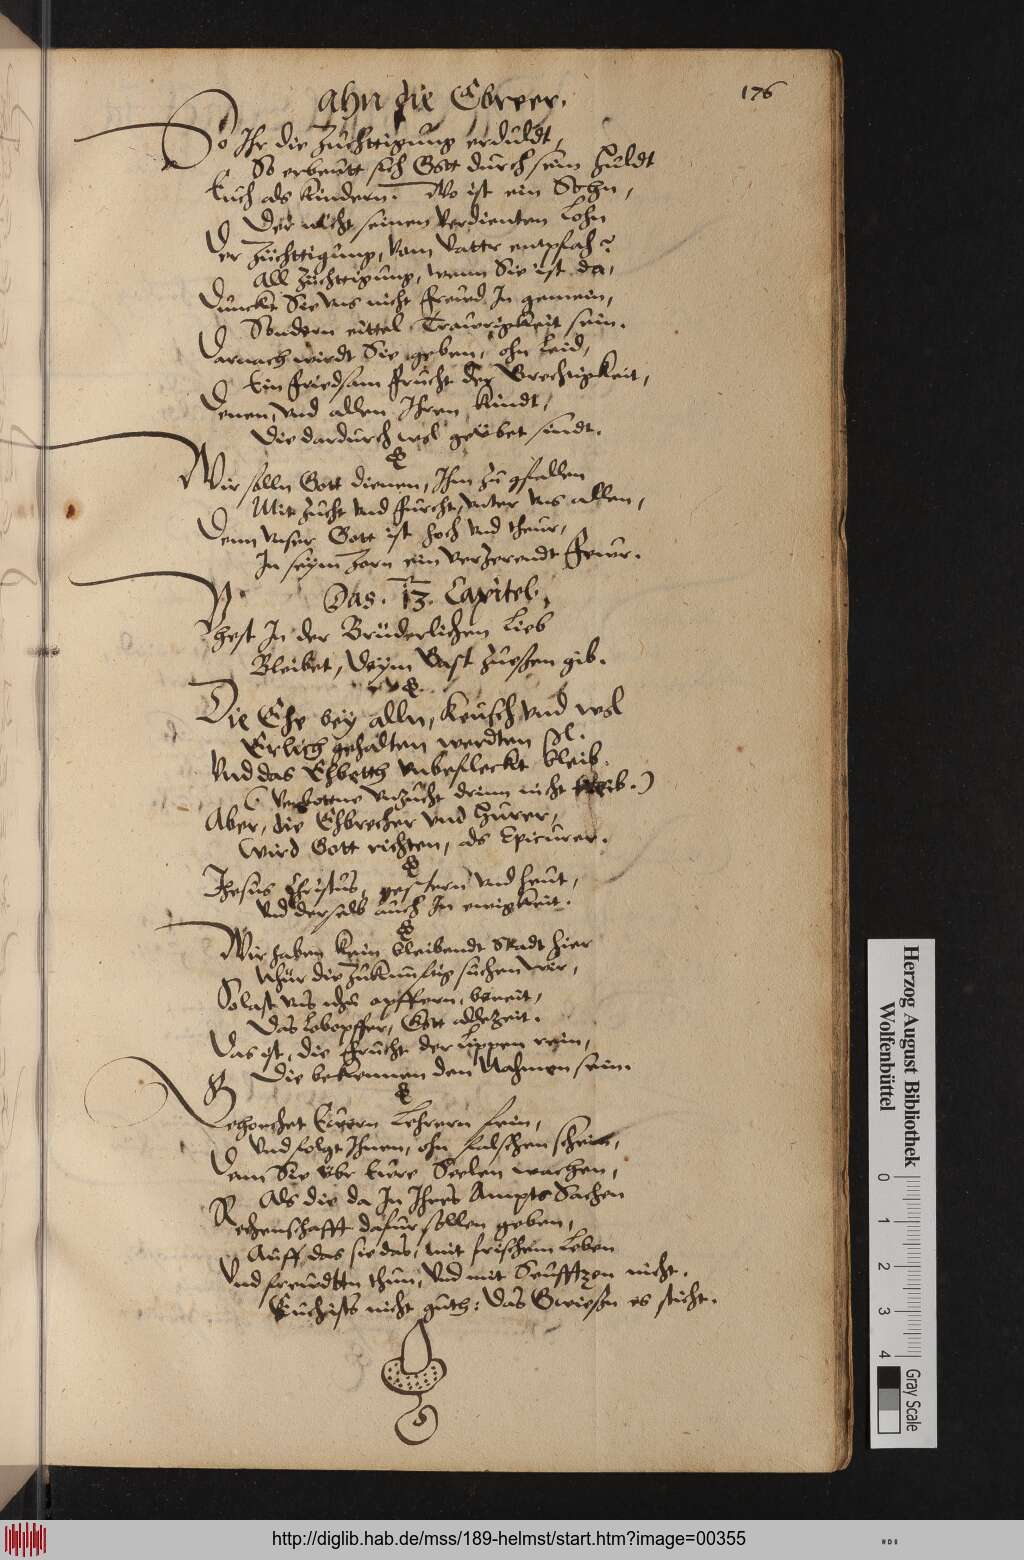 ahn die Ebreer.
176
So Ihr die Züchttigung erduldt,
So erbeutt sich Gott durch sein Huldt
Euch als Kindern. Wo ist ein Sohn,
Der nicht seinen verdienten Lohn
Der Züchttigung, vom Vattr entpfah?
All Züchttigung, wenn Sie ist da,
Dunckt Sie vns nicht freud In gemein,
Sondern eittel Trawrigkeit sein.
Darnach wirdt Sie geben, ohn Leid,
Ein friedsam frucht der Grechtigkeit,
Denen, vnd allen Ihren Kindt,
Die dardurch wol geübet sindt.
Wir solln Gott dienen, Ihm zu gfallen
Mit zucht vnd furcht, vnter vns allen,
Denn vnser Gott ist hoch vnd theur,
In seym Zorn ein verzerendt fewr.
Das. 13. Capitel.
Vhest In der Brüderlichen Lieb
Bleibet, deym Gast zu eßen gib.
Die Ehe bey alln, keusch vnd wol
Erlich gehalten werdten sol.
Vnd das Ehbetth vnbefleckt bleib.
(Verbottne vnzucht drinn nicht treib.)
Aber, die Ehbrecher vnd Hurer,
Wird Gott richten, als Epicurer.
Jhesus Christus, gestern vnd heut,
Vnd derselb auch In ewigkeit.
Wir haben kein bleibendt Stadt hier
Nhur die zukünnftig suchen wir,
So last vns opffern, bereit,
Das Lobopffer, Gott allezeit.
Das ist, die frucht der Lippen rein,
Die bekennen den Nahmen sein.
Gehorchet Euern Lehrern fein,
Vnd folgt Ihnen, ohn falschen schein,
Denn Sie vbr Eure Seelen wachen,
Als die da In Ihrs Ampts Sachen
Rechenschafft dafur sollen geben,
Auff das sie das, mit frischem Leben
Vnd freudttn thun, Vnd mit Seufftzen nicht.
Euch ists nicht guth: das Gwießn es sticht.
Herzog August Bibliothek
Wolfenbüttel
0 1 2 3 4
Gray Scale
http://diglib.hab.de/mss/189-helmst/start.htm?image=00355